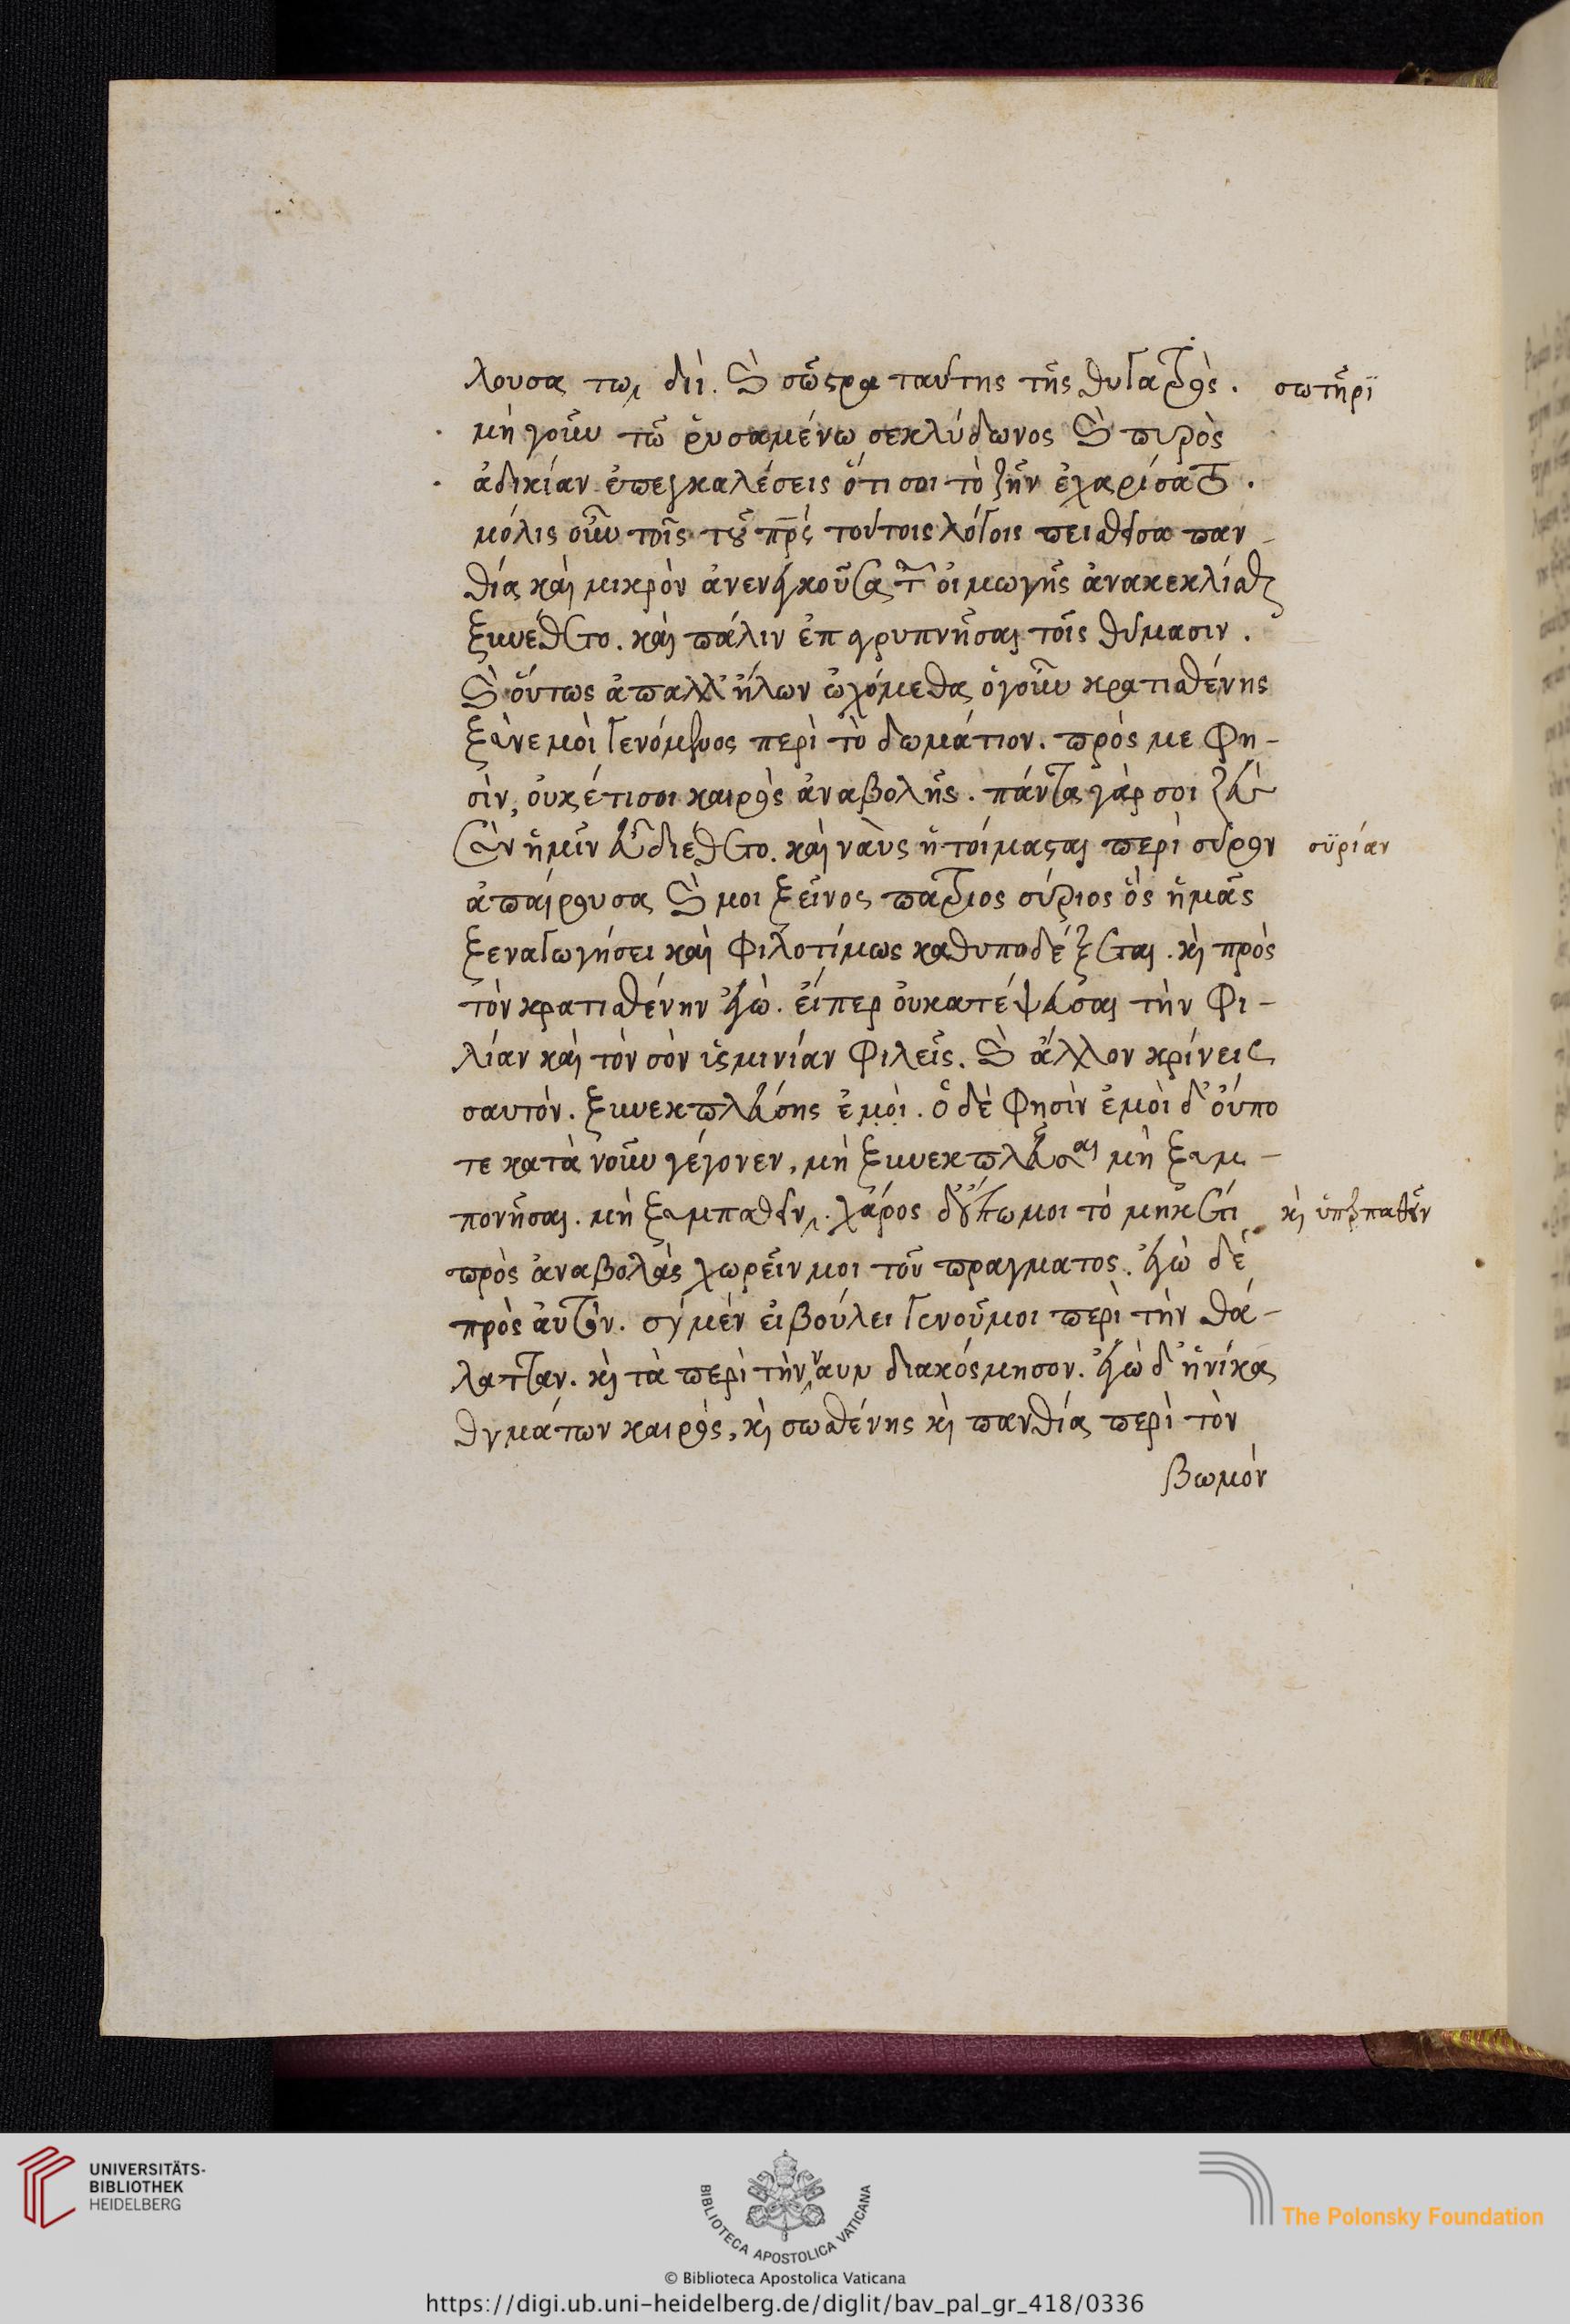 λουσα τωι διὶ. καὶ σῶστρα ταύτης τῆς θυγατρὸς. σωτῆρϊ
μὴ γοῦν τῶ ῥυσαμένω σεκλύδωνος καὶ πυρὸς
ἀδικίαν ἐπεγκαλέσεις ὅτι σοι τὸ ζῆν ἐχαρίσατο.
μόλις οὖν τοῖς τοῦ πρς τούτοις λόγοις πειθεῖσα παν-
θία καὶ μικρὸν ἀνενεγκοῦσα τῆς οἰμωγῆς ἀνακεκλίσθαι
ξυνέθετο. καὶ πάλιν ἐπαγρυπνῆσαι τοῖς θύμασιν.
καὶ οὕτως ἀπαλλήλων ὠχόμεθα, ὁγοῦν κρατισθένης
ξὺν ἐμοὶ γενόμενος περὶ τὸ δωμάτιον. πρός με φη-
σὶν, οὐκέτι σοι καιρὸς ἀναβολῆς. πάντα γάρ σοι
σὺν ἡμῖν εὖ διέθετο. καὶ ναὺς ἡτοίμασται περὶ σύρον σϋρίαν
ἀπαίρουσα καὶ μοι ξεῖνος πάτριος σύριος ὃς ἡμᾶς
ξεναγωγήσει καὶ φιλοτίμως καθυποδέξεται. κὶ πρὸς
τὸν κρατισθένην ἐγὼ. εἴπερ οὐκατέψευσαι τὴν φι-
λίαν καὶ τὸν σὸν ὑσμινίαν φιλεῖς. καὶ ἄλλον κρίνεις
σαυτόν. ξυνεκπλεύσης ἐμοὶ. ὁ δὲ φησὶν ἐμοὶ δ' οὔπο
τε κατὰ νοῦν γέγονεν, μὴ ξυνεκπλεῦσαι μὴ ξυμ-
πονῆσαι. μὴ ξυμπαθεῖν. χάρος δ' οὕτω μοι τὸ μηκέτι κὶ ὑπερπαθεῖν
πρὸς ἀναβολὰς χωρεῖν μοι τοῦ πραγματος. ἐγὼ δὲ
πρὸς ἀυτόν. σὺ μὲν ει βούλει γενοῦ μοι περὶ τὴν θά-
λατταν. κὶ τὰ περὶ τὴν ναυν διακόσμησον. ἐγὼ δ' ἡνίκα
θυμάτων καιρὸς, κὶ σωσθένης κὶ πανθία περὶ τὸν
βωμόν
UNIVERSITÄTS-
BIBLIOTHEK
HEIDELBERG
BIBLIOTECA APOSTOLICA VATICANA
The Polonsky Foundation
© Biblioteca Apostolica Vaticana
https://digi.ub.uni-heidelberg.de/diglit/bav_pal_gr_418/0336